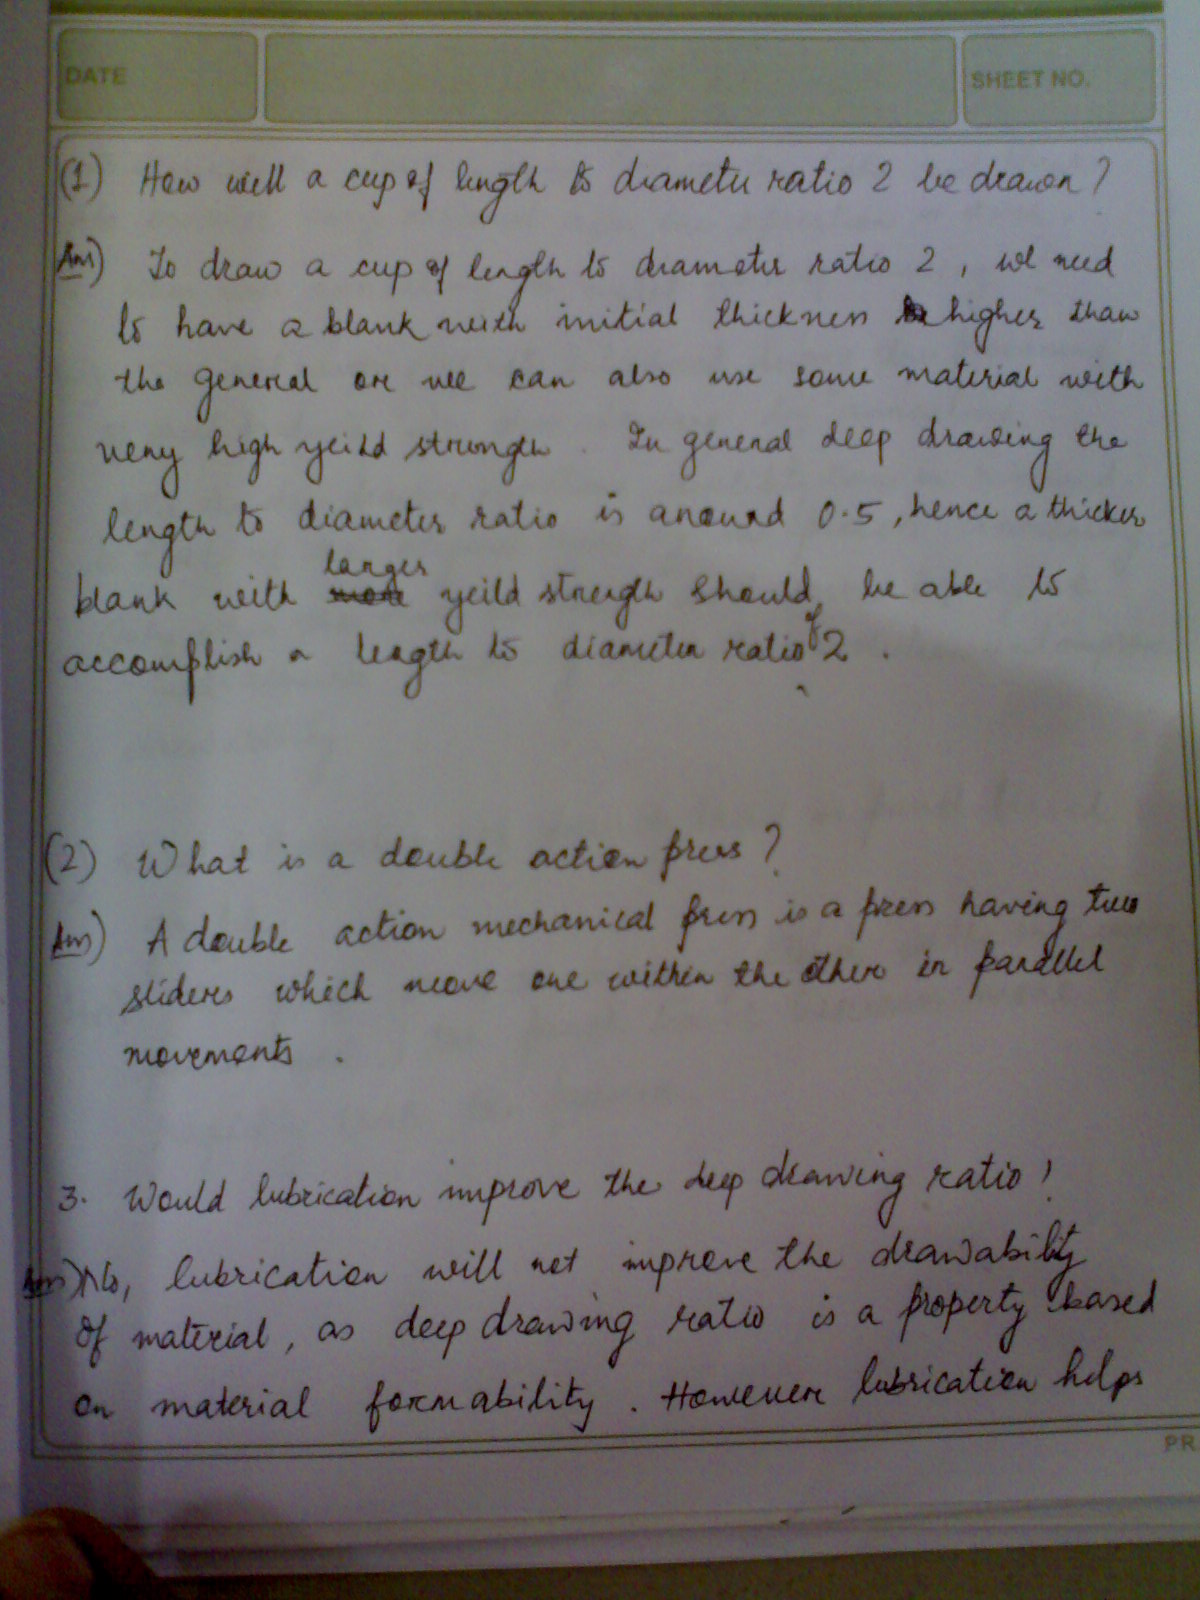 DATE
SHEET NO.
(1) How will a cup of length to diameter ratio 2 be drawn?
Ans) To draw a cup of length to diameter ratio 2, we need
to have a blank with initial thickness higher than
the general or we can also use some material with
very high yeild strength. In general deep drawing the
length to diameter ratio is around 0.5, hence a thicker
larger
blank with more yeild strength should be able to
accomplish a length to diameter ratio of 2.
(2) What is a double action press?
Ans) A double action mechanical press is a press having two
sliders which move one within the other in parallel
movements.
3. Would lubrication improve the deep drawing ratio?
Ans) No, lubrication will not improve the drawability
of material, as deep drawing ratio is a property based
on material formability. However lubrication helps
PR